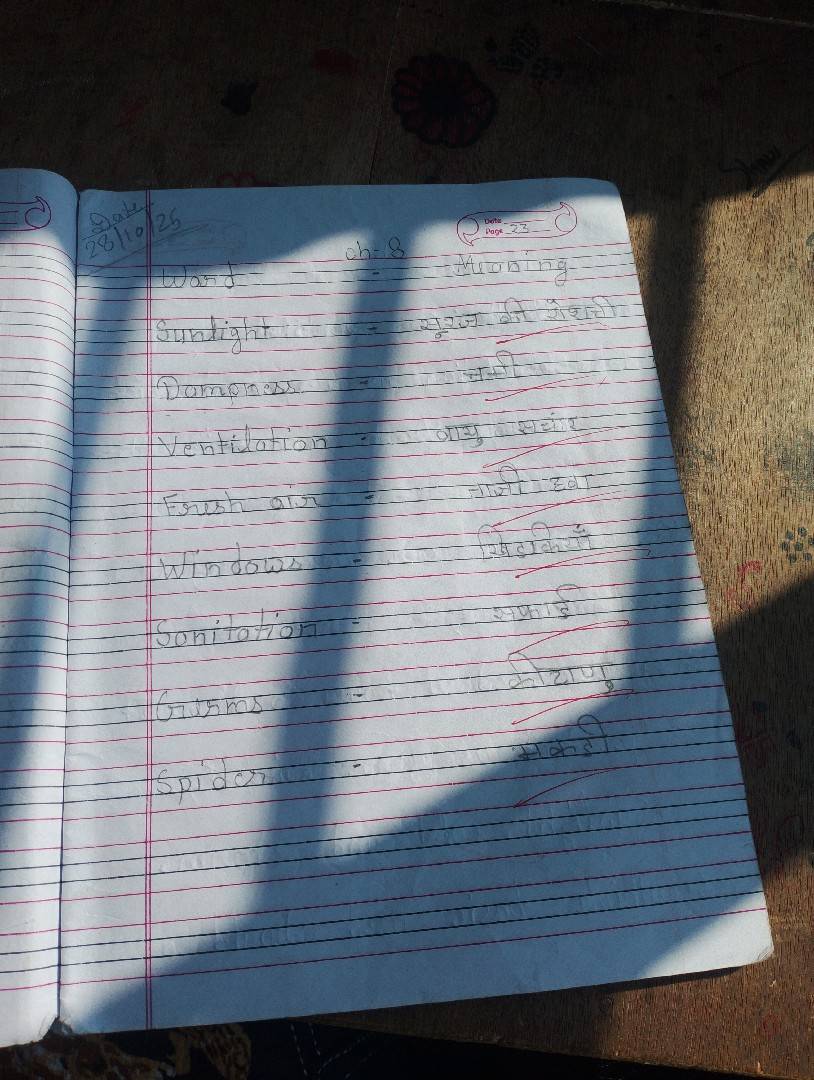 Date
28/10/25
Date
Page 23
ch-8
Word - Meaning
Sunlight - सूरज की रोशनी
Dampness - नमी
Ventilation - वायु संचार
Fresh air - ताजी हवा
Windows - खिड़कियाँ
Sanitation - सफाई
Germs - कीटाणु
Spider - मकड़ी